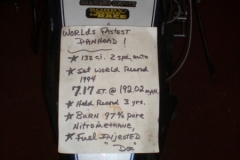 WORLDS FASTEST
PANHEAD!
★ 130 ci. 2 spd. auto
★ Set World Record
1994
7.17 ET. @ 192.02 m.p.h.
★ Held Record 3 yrs.
★ BURN 97% pure
Nitromethane,
★ Fuel Injected
"Doc"